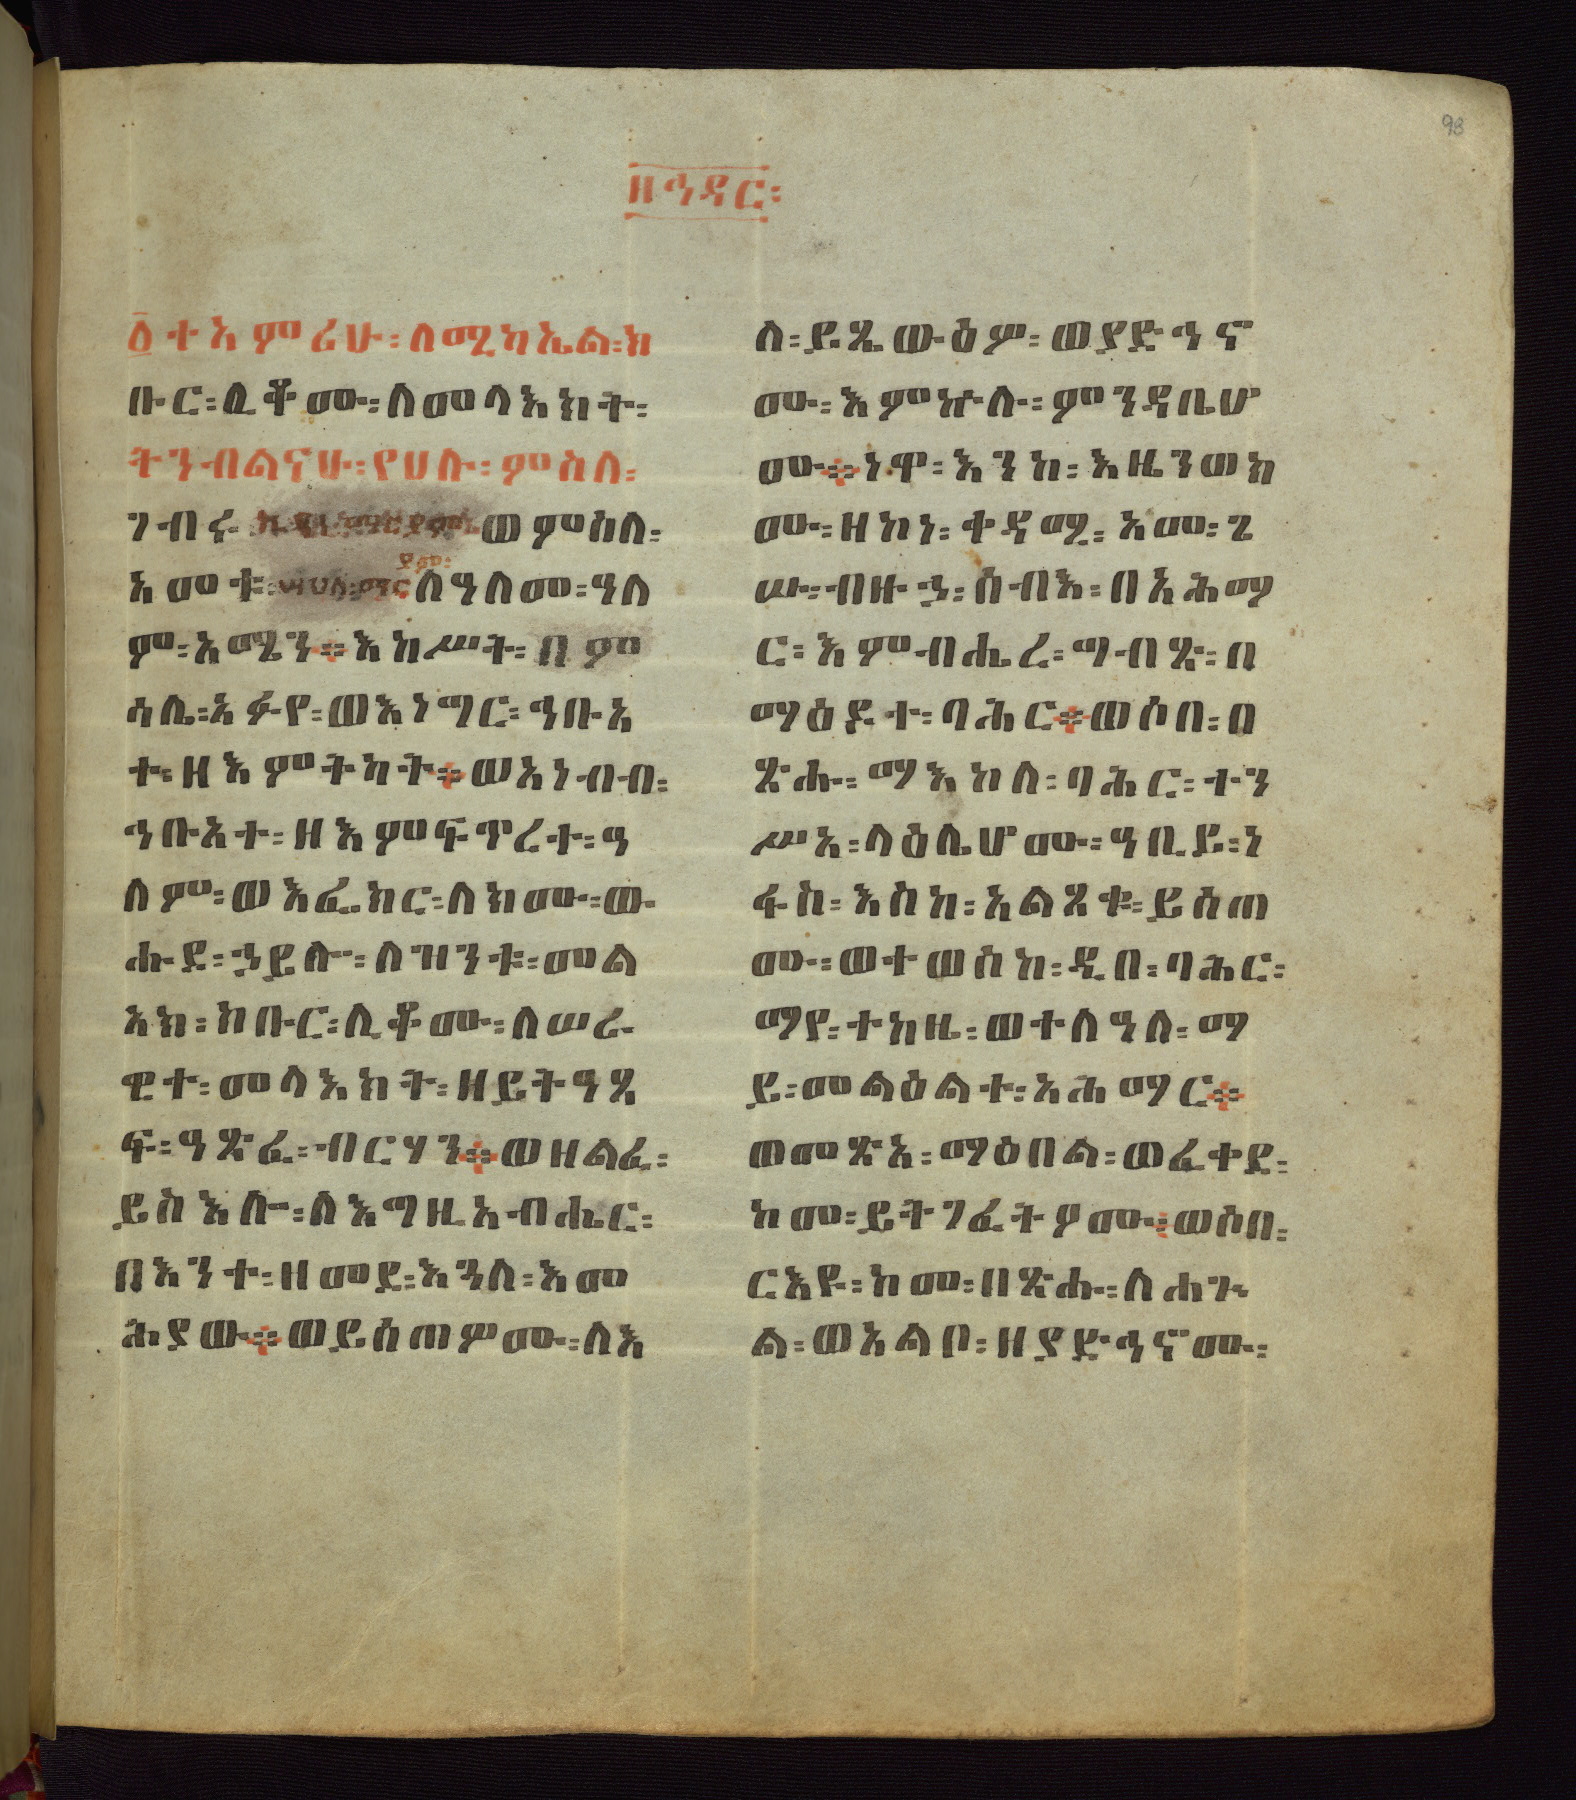 98
ዘኅዳር፡
፩ተአምሪሁ፡ለሚካኤል፡ክ
ቡር፡ሊቆሙ፡ለመላእክት፡
ትንብልናሁ፡የሀሉ፡ምስለ፡
ገብሩ ወምስለ፡
አመቱ፡ ለዓለመ፡ዓለ
ም፡አሜን፨እከሥት፡በም
ሳሌ፡አፉየ፡ወእነግር፡ኅቡአ
ተ፡ዘእምትካት፨ወአነብብ፡
ኅቡአተ፡ዘእምፍጥረተ፡ዓ
ለም፡ወእፌክር፡ለክሙ፡ው
ሑደ፡ኃይሉ፡ለዝንቱ፡መል
አክ፡ክቡር፡ሊቆሙ፡ለሠራ
ዊተ፡መላእክት፡ዘይትዓፂ
ፍ፡ዓጽፈ፡ብርሃን፨ወዘልፈ፡
ይስእሎ፡ለእግዚአብሔር፡
በእንተ፡ዘመደ፡እጓለ፡እመ
ሕያው፨ወይሰጠምሙ፡ለእ
ለ፡ይጼውዕዎ፡ወያድኅኖ
ሙ፡እምኵሉ፡ምንዳቤሆ
ሙ፨ነዋ፡እንከ፡እዜንወክ
ሙ፡ዘከነ፡ቀዳሚ፡አመ፡ጌ
ሡ፡ብዙኃ፡ሰብእ፡በአሕማ
ር፡እምብሔረ፡ግብጽ፡በ
ማዕደተ፡ባሕር፨ወሶበ፡በ
ጽሑ፡ማእከለ፡ባሕር፡ተን
ሥአ፡ላዕሌሆሙ፡ዓቢይ፡ነ
ፋስ፡እስከ፡አልጸቁ፡ይሰጠ
ሙ፡ወተወስከ፡ዲበ፡ባሕር፡
ማየ፡ተከዜ፡ወተለዓለ፡ማ
ይ፡መልዕልተ፡አሕማር፨
ወመጽአ፡ማዕበል፡ወፈተደ፡
ከመ፡ይትገፈትዖሙ፨ወሶበ፡
ርእዩ፡ከመ፡በጽሑ፡ለሐጕ
ል፡ወአልቦ፡ዘያድኅኖሙ፡